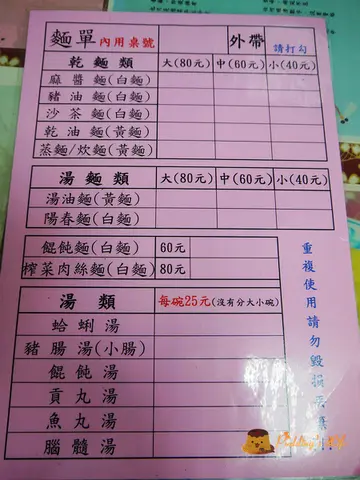 麵單 內用桌號 外帶 請打勾
乾麵類 大(80元) 中(60元) 小(40元)
麻醬麵(白麵)
豬油麵(白麵)
沙茶麵(白麵)
乾油麵(黃麵)
蒸麵/炊麵(黃麵)
湯麵類 大(80元) 中(60元) 小(40元)
湯油麵(黃麵)
陽春麵(白麵)
餛飩麵(白麵) 60元
榨菜肉絲麵(白麵) 80元
湯類 每碗25元(沒有分大小碗)
蛤蜊湯
豬腸湯(小腸)
餛飩湯
貢丸湯
魚丸湯
腦髓湯
重複使用請勿毀損